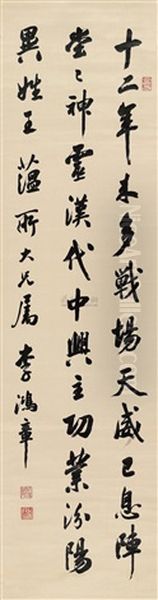 十二年来多戰場天威已息陣
堂々神靈漢代中興主功業汾陽
異姓王 薀所大兄屬 李鴻章